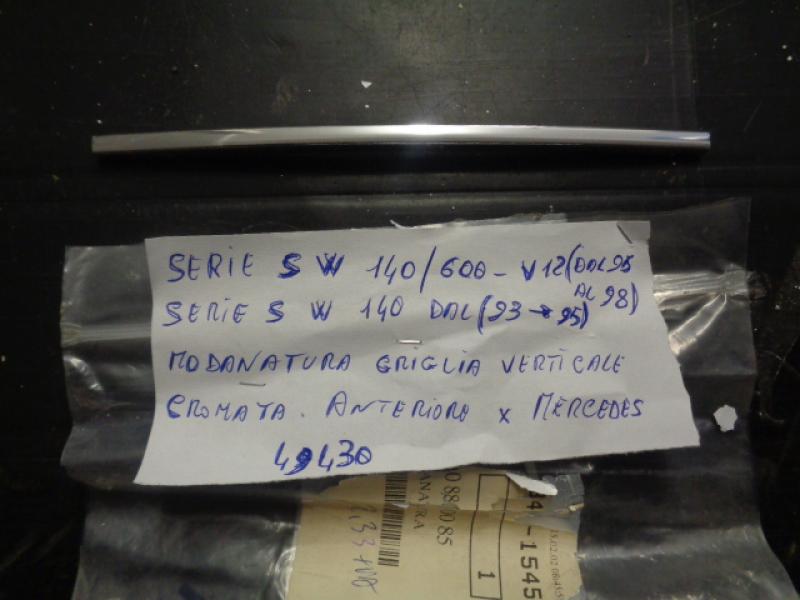 SERIE S W 140/600 - V12 (DAL 95
AL 98)
SERIE S W 140 DAL (93 → 95)
MODANATURA GRIGLIA VERTICALE
CROMATA. ANTERIORE x MERCEDES
49430
0 88 00 85
ANATRA
1
4 - 1545